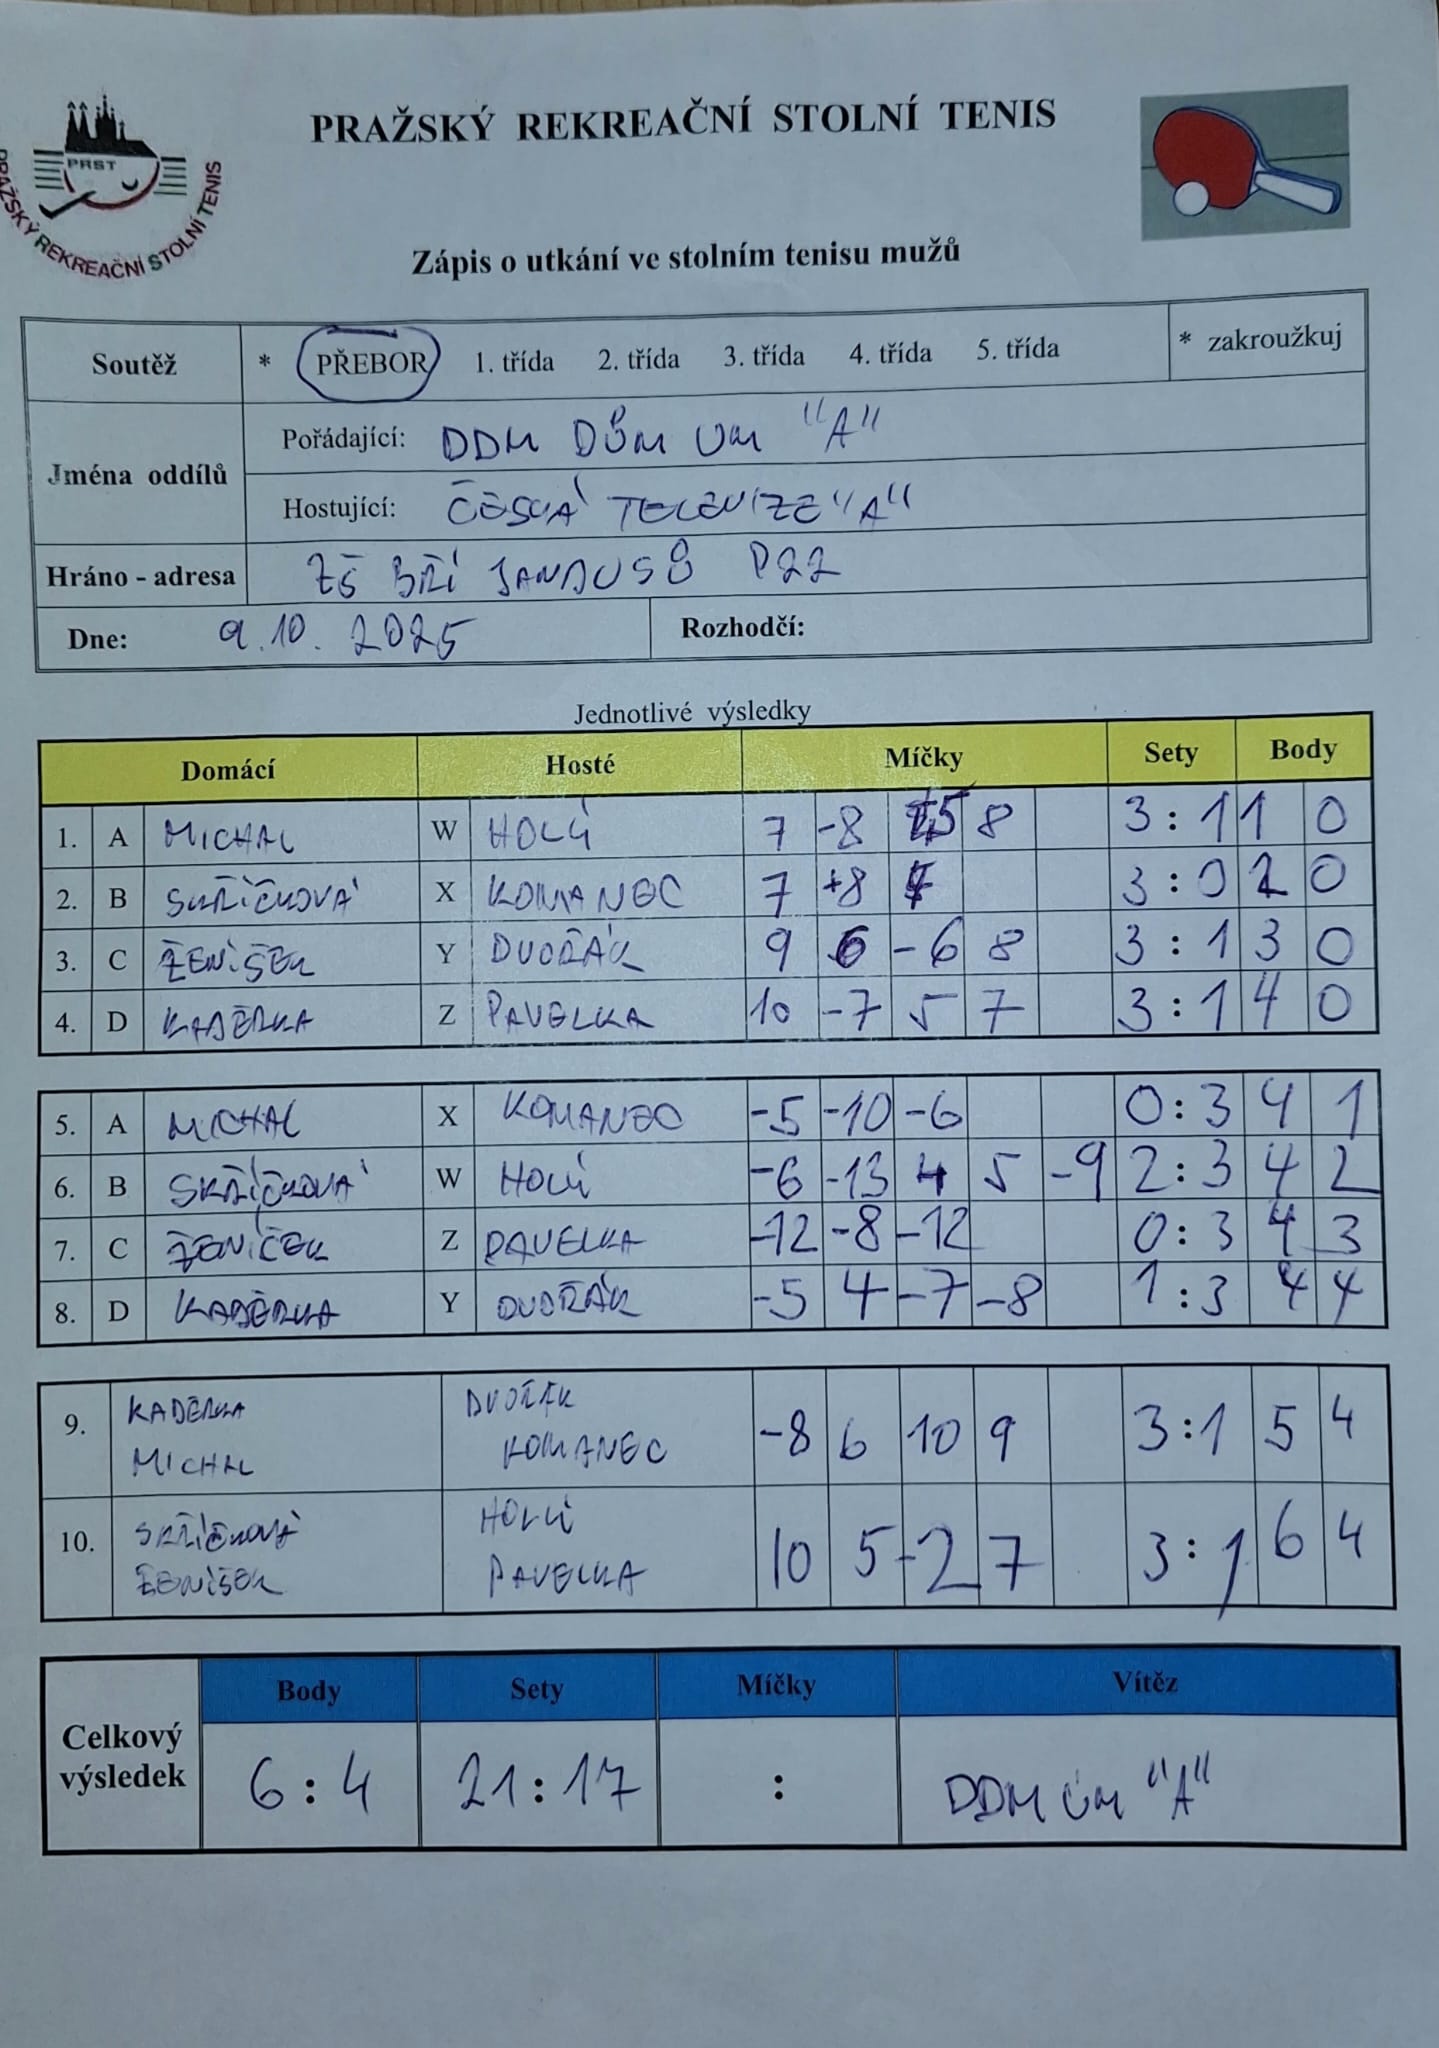 PRAŽSKÝ REKREAČNÍ STOLNÍ TENIS
PRST
PRAŽSKÝ REKREAČNÍ STOLNÍ TENIS
Zápis o utkání ve stolním tenisu mužů
Soutěž * PŘEBOR 1. třída 2. třída 3. třída 4. třída 5. třída * zakroužkuj
Jména oddílů
Pořádající: DDM DŮM UM "A"
Hostující: ČESKÁ TELEVIZE "A"
Hráno - adresa ZŠ BŘÍ JANDUSŮ P22
Dne: 9.10.2025 Rozhodčí:
Jednotlivé výsledky
Domácí Hosté Míčky Sety Body
1. A MICHAL W HOLÝ 7 -8 15 8 3:1 1 0
2. B SKŘÍČKOVÁ X KOMANEC 7 +8 3:0 2 0
3. C ŽENÍŠEK Y DVOŘÁK 9 6 -6 8 3:1 3 0
4. D KADĚRKA Z PAVELKA 10 -7 5 7 3:1 4 0
5. A MICHAL X KOMANEC -5 -10 -6 0:3 4 1
6. B SKŘÍČKOVÁ W HOLÝ -6 -13 4 5 -9 2:3 4 2
7. C ŽENÍČEK Z PAVELKA -12 -8 -12 0:3 4 3
8. D KADĚRKA Y DVOŘÁK -5 4 -7 -8 1:3 4 4
9. KADĚRKA DVOŘÁK -8 6 10 9 3:1 5 4
MICHAL KOMANEC
10. SKŘÍČKOVÁ HOLÝ 10 5 -2 7 3:1 6 4
ŽENÍŠEK PAVELKA
Celkový výsledek
Body Sety Míčky Vítěz
6:4 21:17 : DDM ÚM "A"